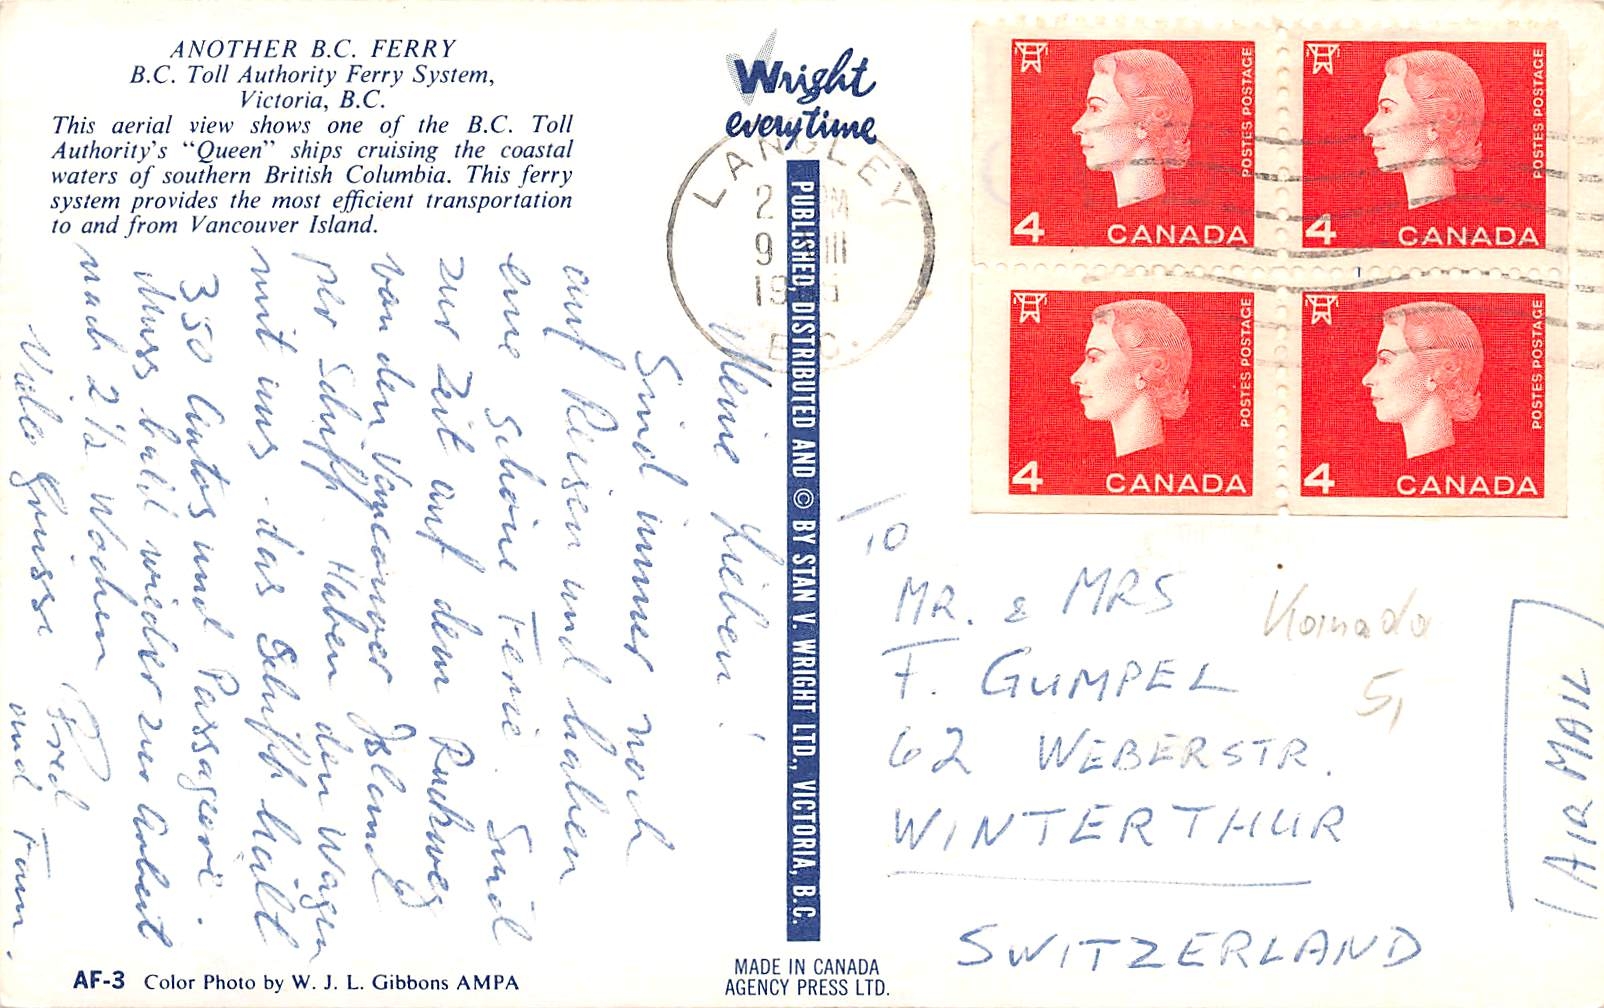 ANOTHER B.C. FERRY
B.C. Toll Authority Ferry System,
Victoria, B.C.
This aerial view shows one of the B.C. Toll
Authority's "Queen" ships cruising the coastal
waters of southern British Columbia. This ferry
system provides the most efficient transportation
to and from Vancouver Island.
Meine Lieben!
Sind immer noch
auf Reisen und haben
eine schöne Ferie. Sind
zur Zeit auf dem Rückweg
von den Vancouver Island
per Schiff. Haben den Wagen
mit uns das Schiff hält
350 Autos und Passagiere.
Muss bald wieder zur Arbeit
nach 2 1/2 Wochen
Viele Grüsse Fred
und Fam.
AF-3 Color Photo by W. J. L. Gibbons AMPA
Wright
everytime
PUBLISHED, DISTRIBUTED AND © BY STAN V. WRIGHT LTD., VICTORIA, B.C.
MADE IN CANADA
AGENCY PRESS LTD.
LANGLEY
2 PM
9 III
B.C.
4 CANADA
POSTES POSTAGE
4 CANADA
POSTES POSTAGE
4 CANADA
POSTES POSTAGE
4 CANADA
POSTES POSTAGE
TO
MR. & MRS
F. GUMPEL
62 WEBERSTR.
WINTERTHUR
SWITZERLAND
Kanada
5,
AIRMAIL